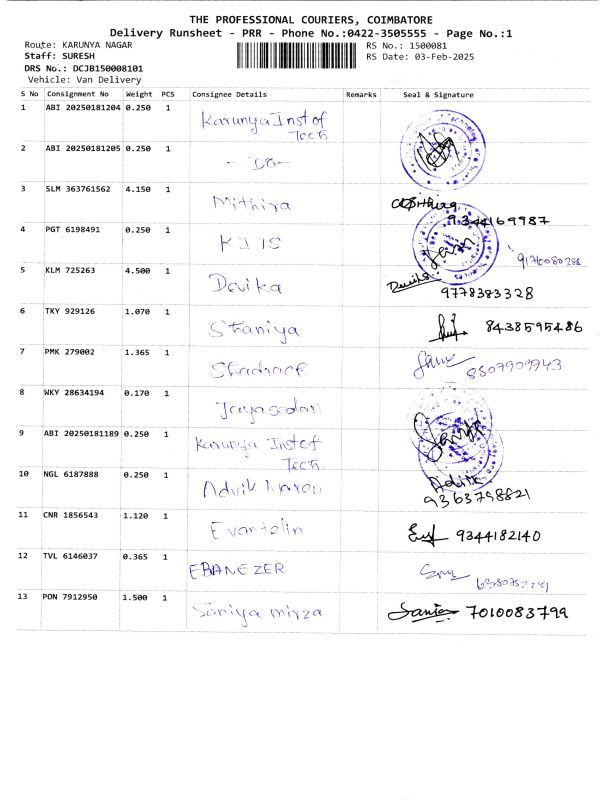 THE PROFESSIONAL COURIERS, COIMBATORE
Delivery Runsheet - PRR - Phone No.:0422-3505555 - Page No.:1
Route: KARUNYA NAGAR
RS No.: 1500081
Staff: SURESH
RS Date: 03-Feb-2025
DRS No.: DCJB150008101
Vehicle: Van Delivery
S No Consignment No Weight PCS Consignee Details Remarks Seal & Signature
1 ABI 20250181204 0.250 1 Karunya Inst of
Tech
2 ABI 20250181205 0.250 1 - DO -
3 SLM 363761562 4.150 1 Mithira
9344169987
4 PGT 6198491 0.250 1 KITS
9176080288
5 KLM 725263 4.500 1 Devika Devika
9778383328
6 TKY 929126 1.070 1 Sthaniya 8438595486
7 PMK 279002 1.365 1 Shadrack
8807909943
8 WKY 28634194 0.170 1
9 ABI 20250181189 0.250 1 Karunya Inst of
Tech
10 NGL 6187888 0.250 1 Advik
9363798821
11 CNR 1856543 1.120 1 9344182140
12 TVL 6146037 0.365 1 EBANEZER
13 PON 7912950 1.500 1 Saniya mirza 7010083799